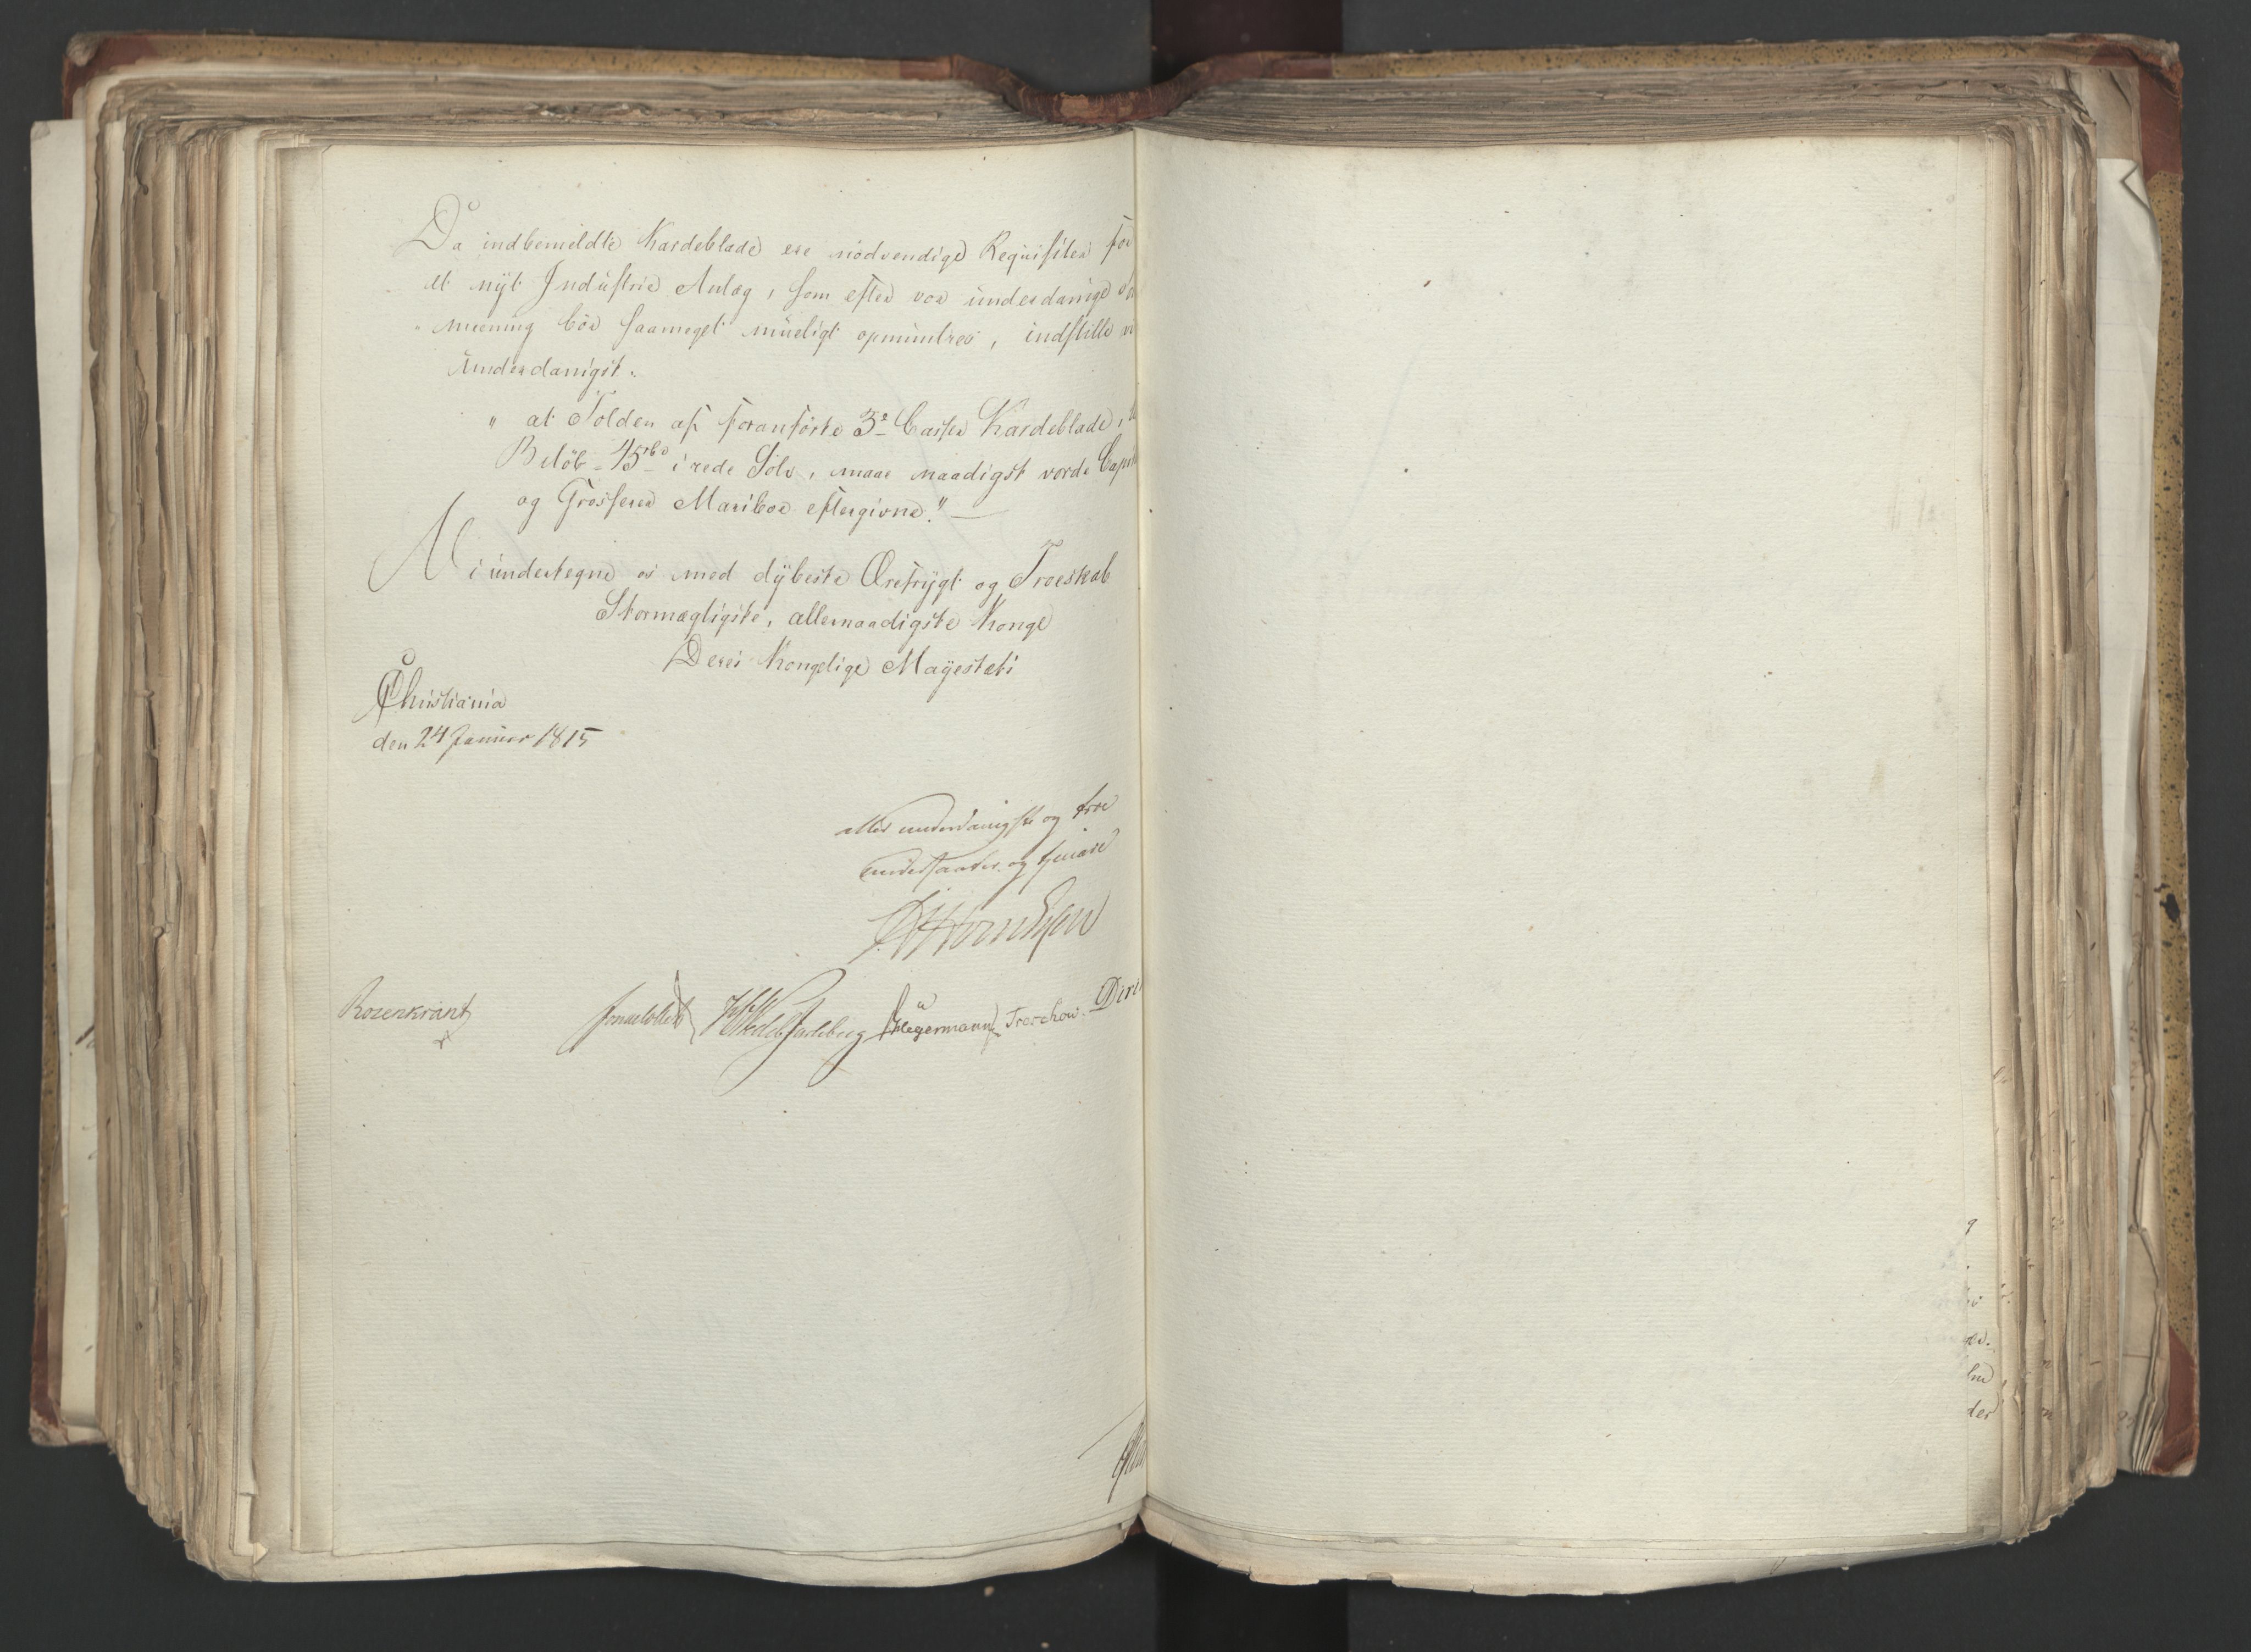 Da indbemeldte Kardeblade ere nödvendige Requisiter for
et nÿt Industrie Anlæg, som efter vor underdanige For
meening bör saameget müeligt opmuntres, indstille vi
underdanigst:
" at Tolden af foranförte 3de Casser Kardeblade,
Belöb 45 rbd i rede Sölv, maae naadigst vorde Capit
og Grosserer Mariboe eftergivne." —
Vi undertegne os med dÿbeste Ærefrÿgt og Troeskab
Stormægtigste, allernaadigste Konge
Deres Kongelige Mayestæts
Christiania
den 24 Januar 1815
aller underdanigste og troe
undersaatter og tjenere
Rosenkrantz Jonas Collett Hegermann Treschow. Diri